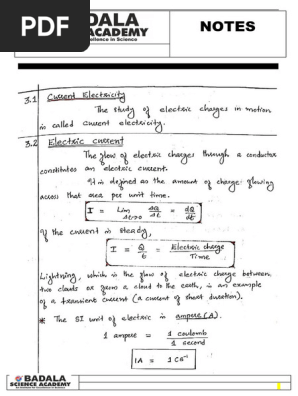 PDF
BADALA
SCIENCE ACADEMY
Excellence in Science
NOTES
3.1 Current Electricity
The study of electric charges in motion
is called current electricity.
3.2 Electric current
The flow of electric charges through a conductor
constitutes an electric current.
It is defined as the amount of charge flowing
across that area per unit time.
I = Lim Δt→0 ΔQ/Δt = dQ/dt
If the current is steady,
I = Q/t = Electric charge/Time
Lightning, which is the flow of electric charge between
two clouds or from a cloud to the earth, is an example
of a transient current (a current of short duration).
* The SI unit of electric is ampere (A).
1 ampere = 1 coulomb/1 second
1A = 1 Cs⁻¹
BADALA
SCIENCE ACADEMY